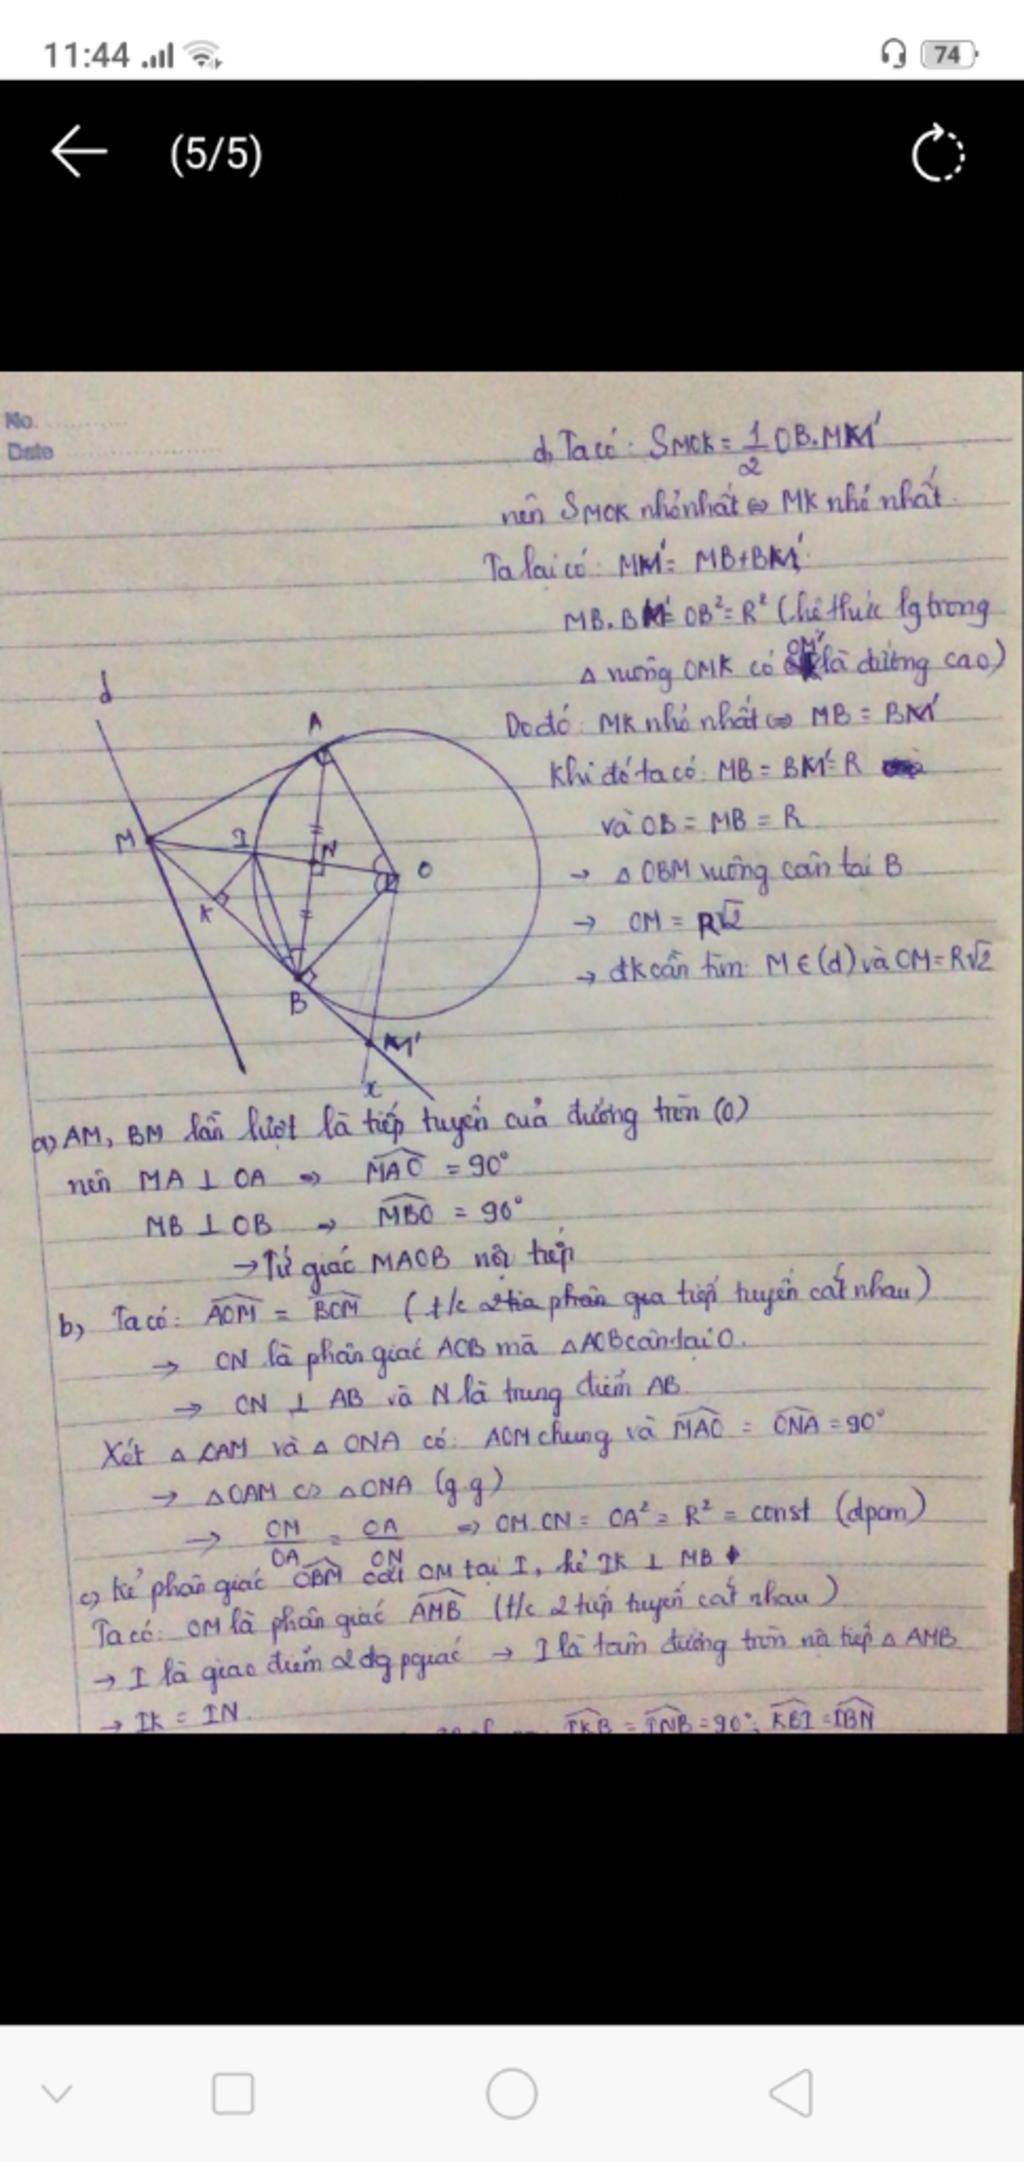 11:44
74
(5/5)
No.
Date
d, Ta có: SMOK = 1/2 OB.MM'
nên SMOK nhỏ nhất ⇔ MK nhỏ nhất.
Ta lại có: MM' = MB+BM'
MB.BM' = OB² = R² (hệ thức lg trong
Δ vuông OMK có là đường cao)
Do đó: MK nhỏ nhất ⇔ MB = BM'
Khi đó ta có: MB = BM' = R
và OB = MB = R
→ Δ OBM vuông cân tại B
→ OM = R√2
→ đk cần tìm: M ∈ (d) và OM = R√2
d
A
M
I
N
O
K
B
M'
x
a, AM, BM lần lượt là tiếp tuyến cuả đường tròn (O)
nên MA ⊥ OA ⇒ MAO = 90°
MB ⊥ OB → MBO = 90°
→ Tứ giác MAOB nội tiếp
b, Ta có: AOM = BOM (t/c tiếp tuyến cắt nhau)
→ ON là phân giác AOB mà ΔAOB cân tại O.
→ ON ⊥ AB và N là trung điểm AB.
Xét Δ OAM và Δ ONA có: AOM chung và MAO = ONA = 90°
→ ΔOAM ∽ ΔONA (g.g)
→ OM/OA = OA/ON ⇒ OM.ON = OA² = R² = const (dpcm)
c, Kẻ phân giác OBM cắt OM tại I, kẻ IK ⊥ MB
Ta có: OM là phân giác AMB (t/c 2 tiếp tuyến cắt nhau)
→ I là giao điểm 2 đg pgiác → I là tâm đường tròn nội tiếp Δ AMB
→ IK = IN.
IKB = INB = 90°; KBI = IBN